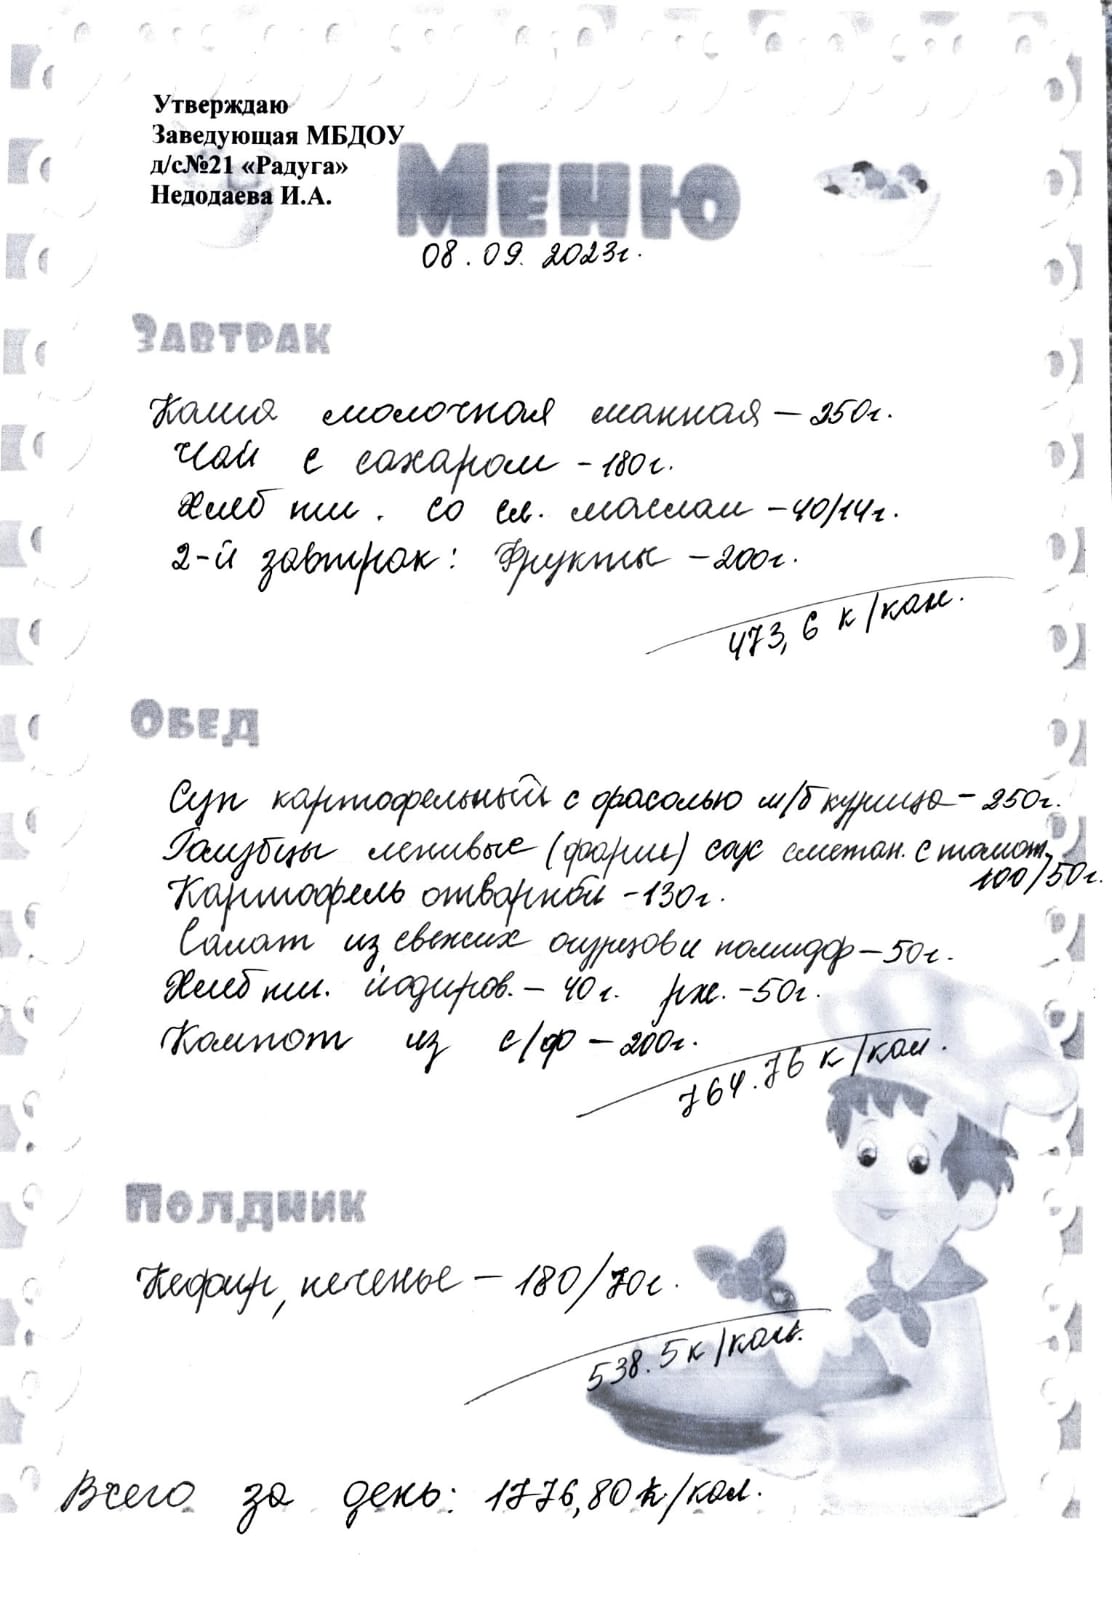 Утверждаю
Заведующая МБДОУ
д/с№21 «Радуга»
Недодаева И.А.
Меню
08.09.2023г.
Завтрак
Каша молочная манная – 250г.
Чай с сахаром – 180г.
Хлеб пш. со сл. маслом – 40/14г.
2-й завтрак: Фрукты – 200г.
473,6 к/кал.
Обед
Суп картофельный с фасолью м/б курица – 250г.
Голубцы ленивые (фарш) соус сметан. с томат.
100/50г.
Картофель отварной – 130г.
Салат из свежих огурцов и помидор – 50г.
Хлеб пш. йодиров. – 40г. рж. – 50г.
Компот из с/ф – 200г.
764.76 к/кал.
Полдник
Кефир, печенье – 180/70г.
538.5 к/кал.
Всего за день: 1776,80 к/кал.